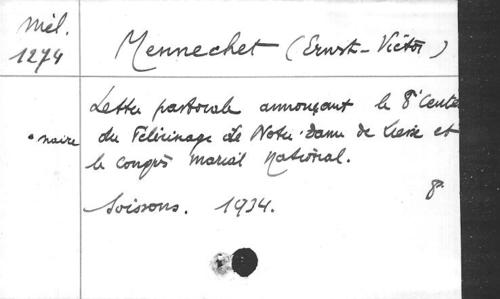 Mél.
1274
Mennechet (Ernest-Victor)
Lettre pastorale annonçant le 8e Cente
naire du Pélérinage de Notre-Dame de Liesse et
le Congrès marial National.
Soissons. 1934. 8°